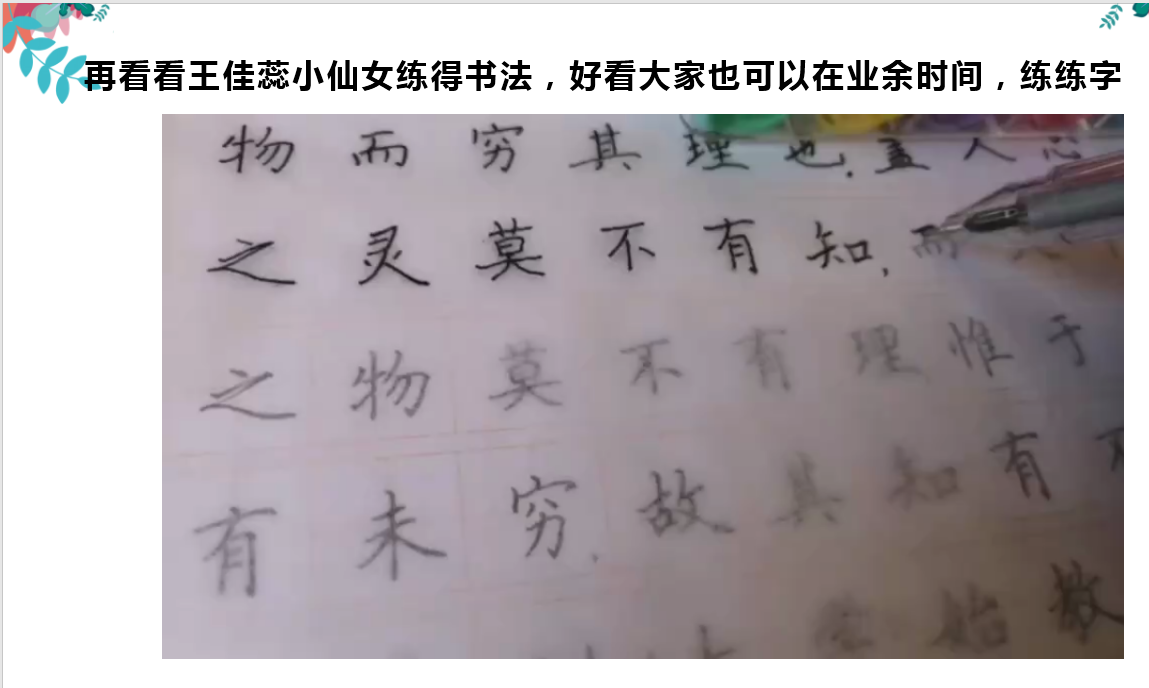 再看看王佳蕊小仙女练得书法，好看大家也可以在业余时间，练练字
物而穷其理也.盖人心
之灵莫不有知,而
之物莫不有理惟于
有未穷.故其知有不
始教